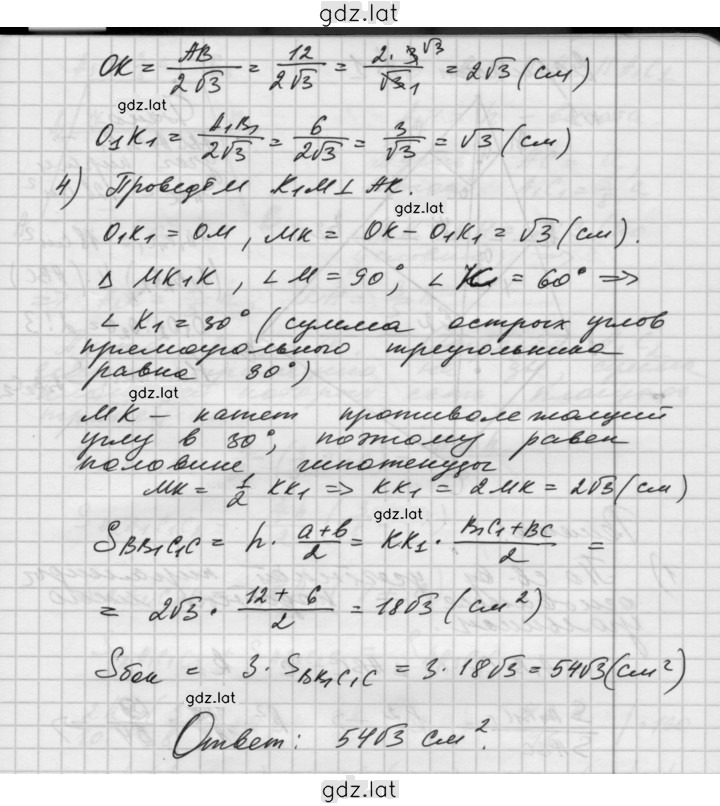 gdz.lat
OK = AB / 2√3 = 12 / 2√3 = 2·3 √3 / √3 1 = 2√3 (см)
gdz.lat
O₁K₁ = A₁B₁ / 2√3 = 6 / 2√3 = 3 / √3 = √3 (см)
4) Проведём K₁M ⊥ AK.
gdz.lat
O₁K₁ = OM, MK = OK - O₁K₁ = √3 (см).
△ MK₁K, ∠M = 90°, ∠K = 60° ⇒
∠K₁ = 30° (сумма острых углов
прямоугольного треугольника
равна 90°)
gdz.lat
MK - катет противолежащий
углу в 30°, поэтому равен
половине гипотенузы
MK = 1/2 KK₁ ⇒ KK₁ = 2MK = 2√3 (см)
gdz.lat
S BB₁C₁C = h · (a+b)/2 = KK₁ · (B₁C₁+BC)/2 =
= 2√3 · (12 + 6)/2 = 18√3 (см²)
Sбок = 3 · S BB₁C₁C = 3 · 18√3 = 54√3 (см²)
gdz.lat
Ответ: 54√3 см².
gdz.lat